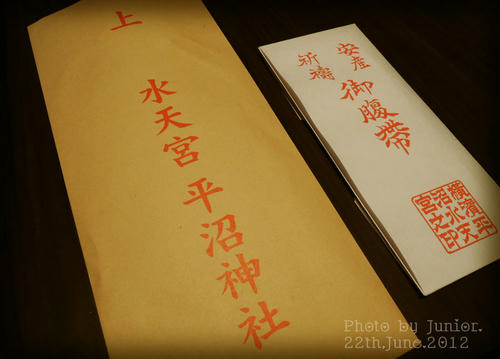 上
水天宮 平沼神社
安産
祈祷
御腹帯
横濱平
沼水天
宮之印
Photo by Junior.
22th.June.2012